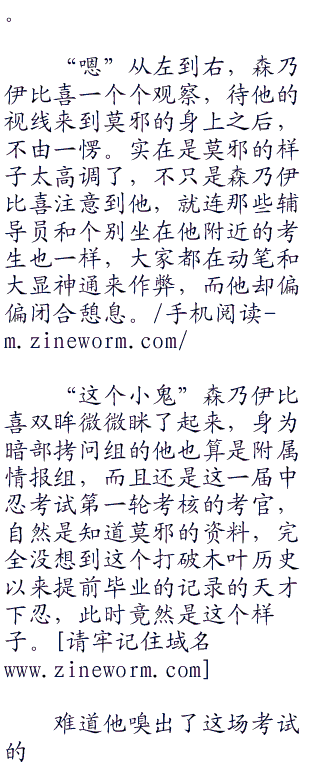 。
“嗯”从左到右，森乃
伊比喜一个个观察，待他的
视线来到莫邪的身上之后，
不由一愣。实在是莫邪的样
子太高调了，不只是森乃伊
比喜注意到他，就连那些辅
导员和个别坐在他附近的考
生也一样，大家都在动笔和
大显神通来作弊，而他却偏
偏闭合憩息。/手机阅读-
m.zineworm.com/
“这个小鬼”森乃伊比
喜双眸微微眯了起来，身为
暗部拷问组的他也算是附属
情报组，而且还是这一届中
忍考试第一轮考核的考官，
自然是知道莫邪的资料，完
全没想到这个打破木叶历史
以来提前毕业的记录的天才
下忍，此时竟然是这个样
子。[请牢记住域名
www.zineworm.com]
难道他嗅出了这场考试
的